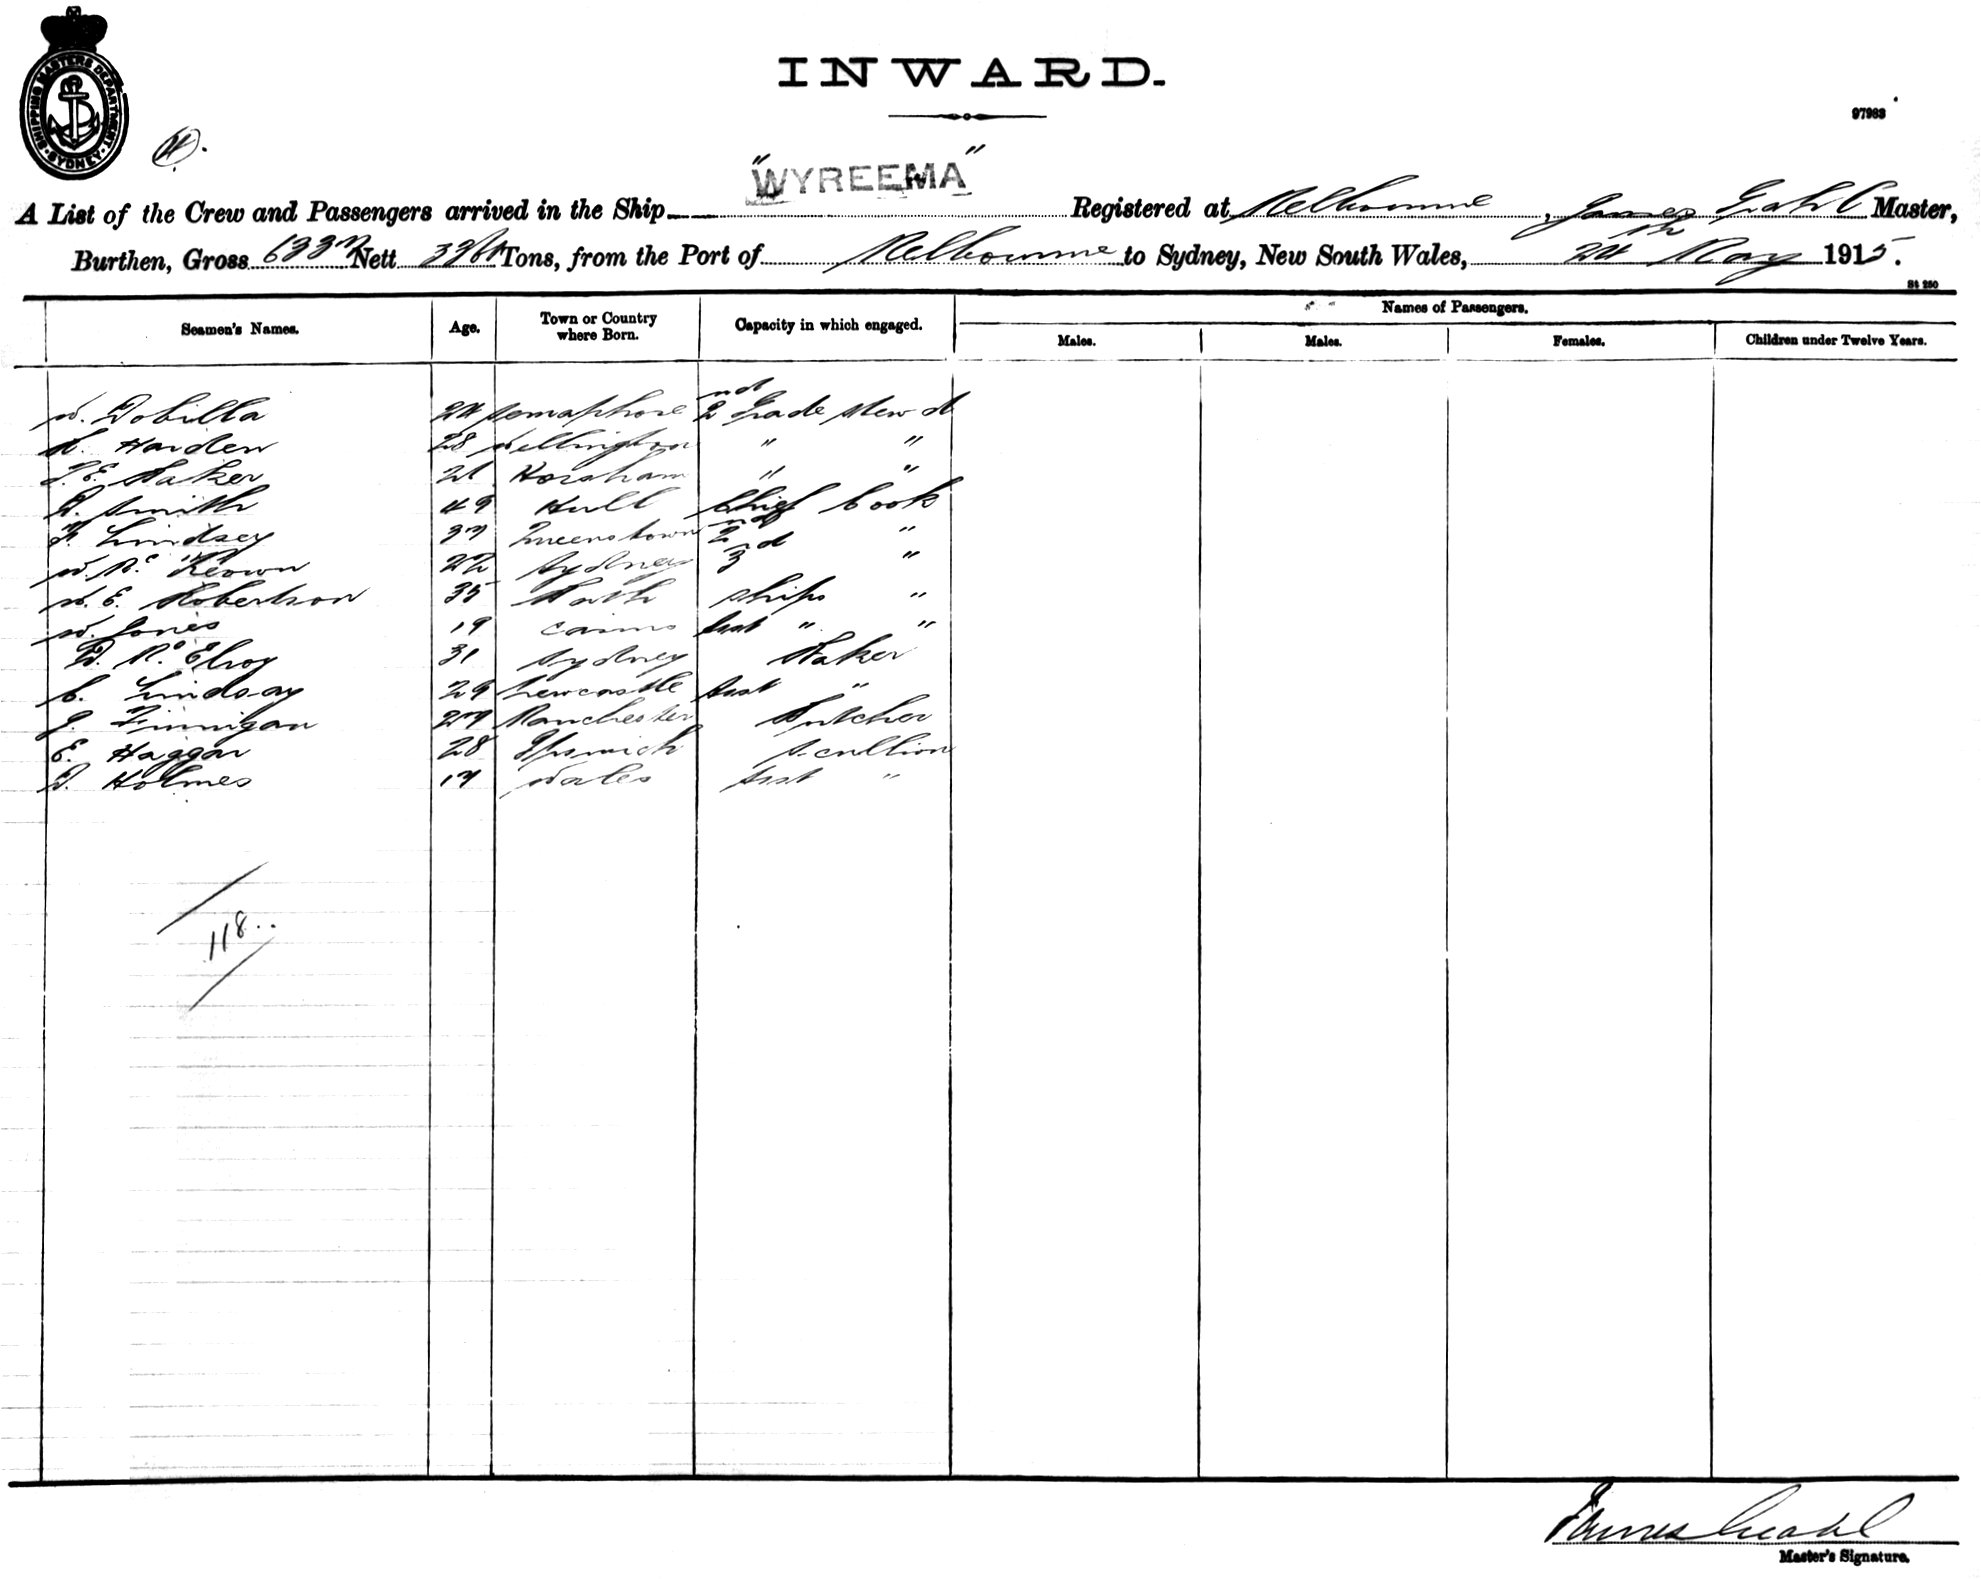 SHIPPING MASTERS DEPARTMENT. SYDNEY.
INWARD.
97983
"WYREEMA"
A List of the Crew and Passengers arrived in the Ship Registered at Melbourne, James Grahl Master,
Burthen, Gross 6337 Nett Tons, from the Port of Melbourne to Sydney, New South Wales, 24th May 1915.
St 250
Seamen's Names. Age. Town or Country where Born. Capacity in which engaged. Names of Passengers.
Males. Males. Females. Children under Twelve Years.
W. Dobilla 24 Semaphore 2nd Grade Stewd
Harden 28 Wellington " "
Baker 21 Horsham " "
D. Smith 49 Hull Chief Cook
F. Lindsey 37 Queenstown 2nd "
W. Mc Keown 22 Sydney 3rd "
W. E. Robertson 35 Bath Ships "
W. Jones 19 Cairns Asst " "
D. Mc Elroy 31 Sydney Baker
C. Lindsay 29 Newcastle Asst "
J. Finnigan 27 Manchester Butcher
E. Haggar 28 Ipswich Scullion
D. Holmes 17 Wales Asst "
118..
James Grahl
Master's Signature.